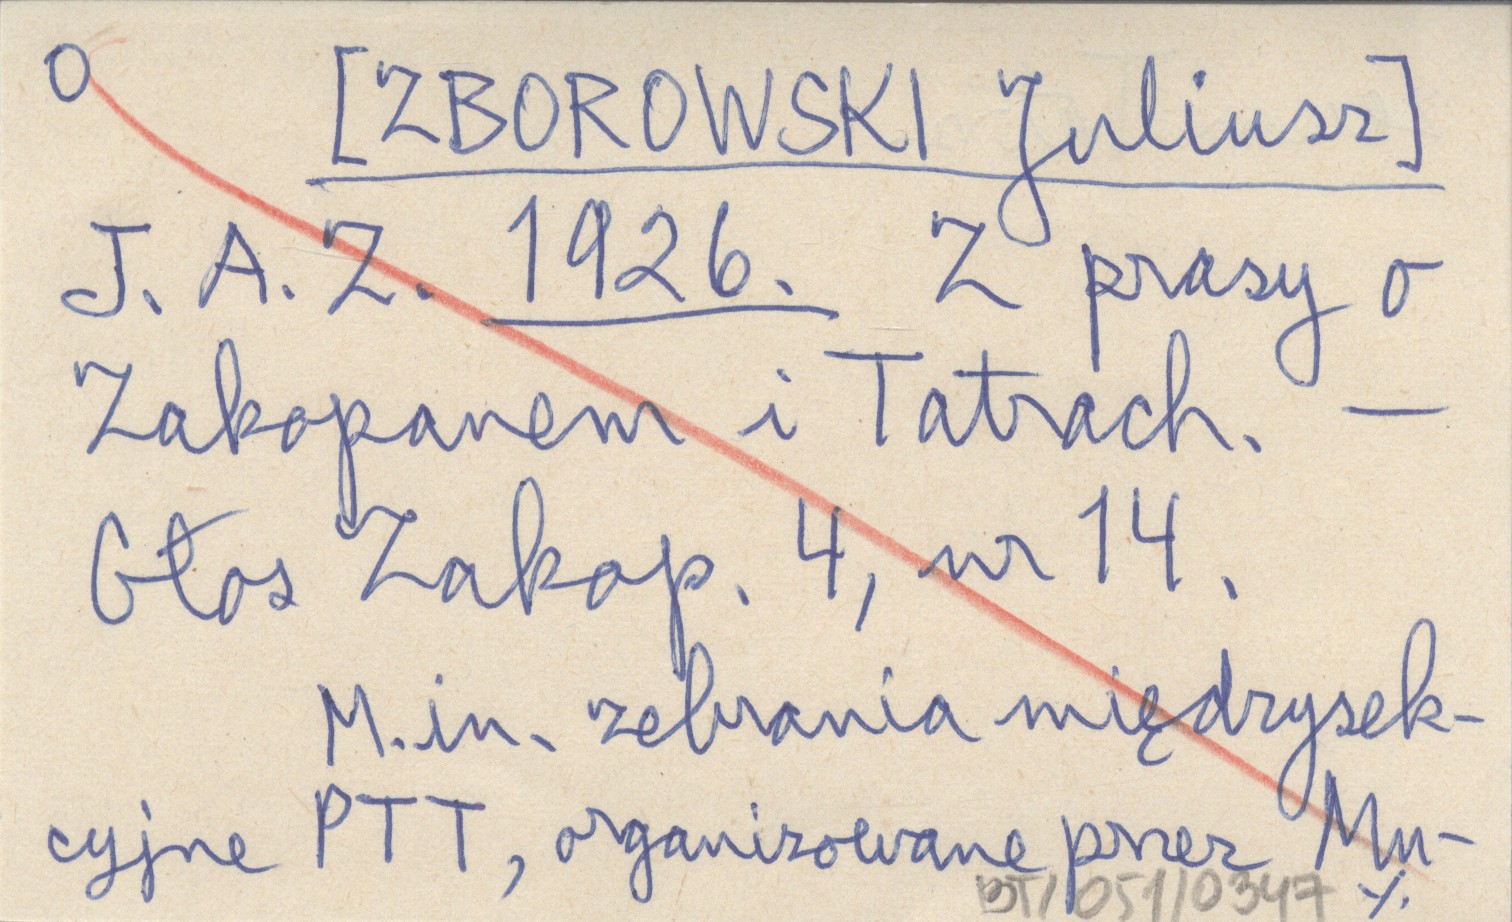 O [ZBOROWSKI Juliusz]
J. A. Z. 1926. Z prasy o
Zakopanem i Tatrach. —
Głos Zakop. 4, nr 14.
M. in. zebrania międzysek-
cyjne PTT, organizowane przez Mu-
BT/051/0347 ./.